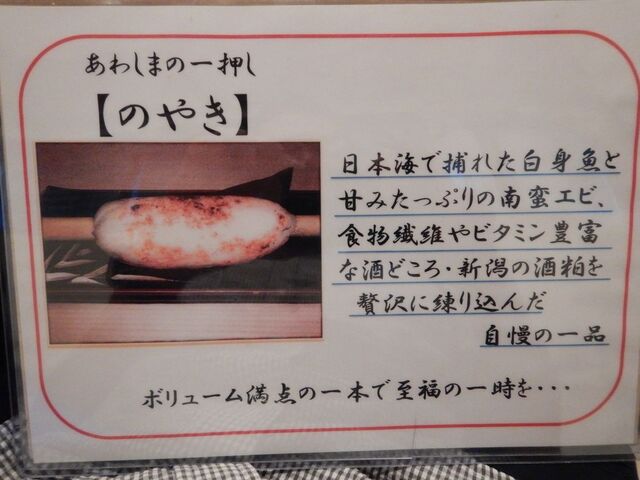 あわしまの一押し
【のやき】
日本海で捕れた白身魚と
甘みたっぷりの南蛮エビ、
食物繊維やビタミン豊富
な酒どころ・新潟の酒粕を
贅沢に練り込んだ
自慢の一品
ボリューム満点の一本で至福の一時を・・・